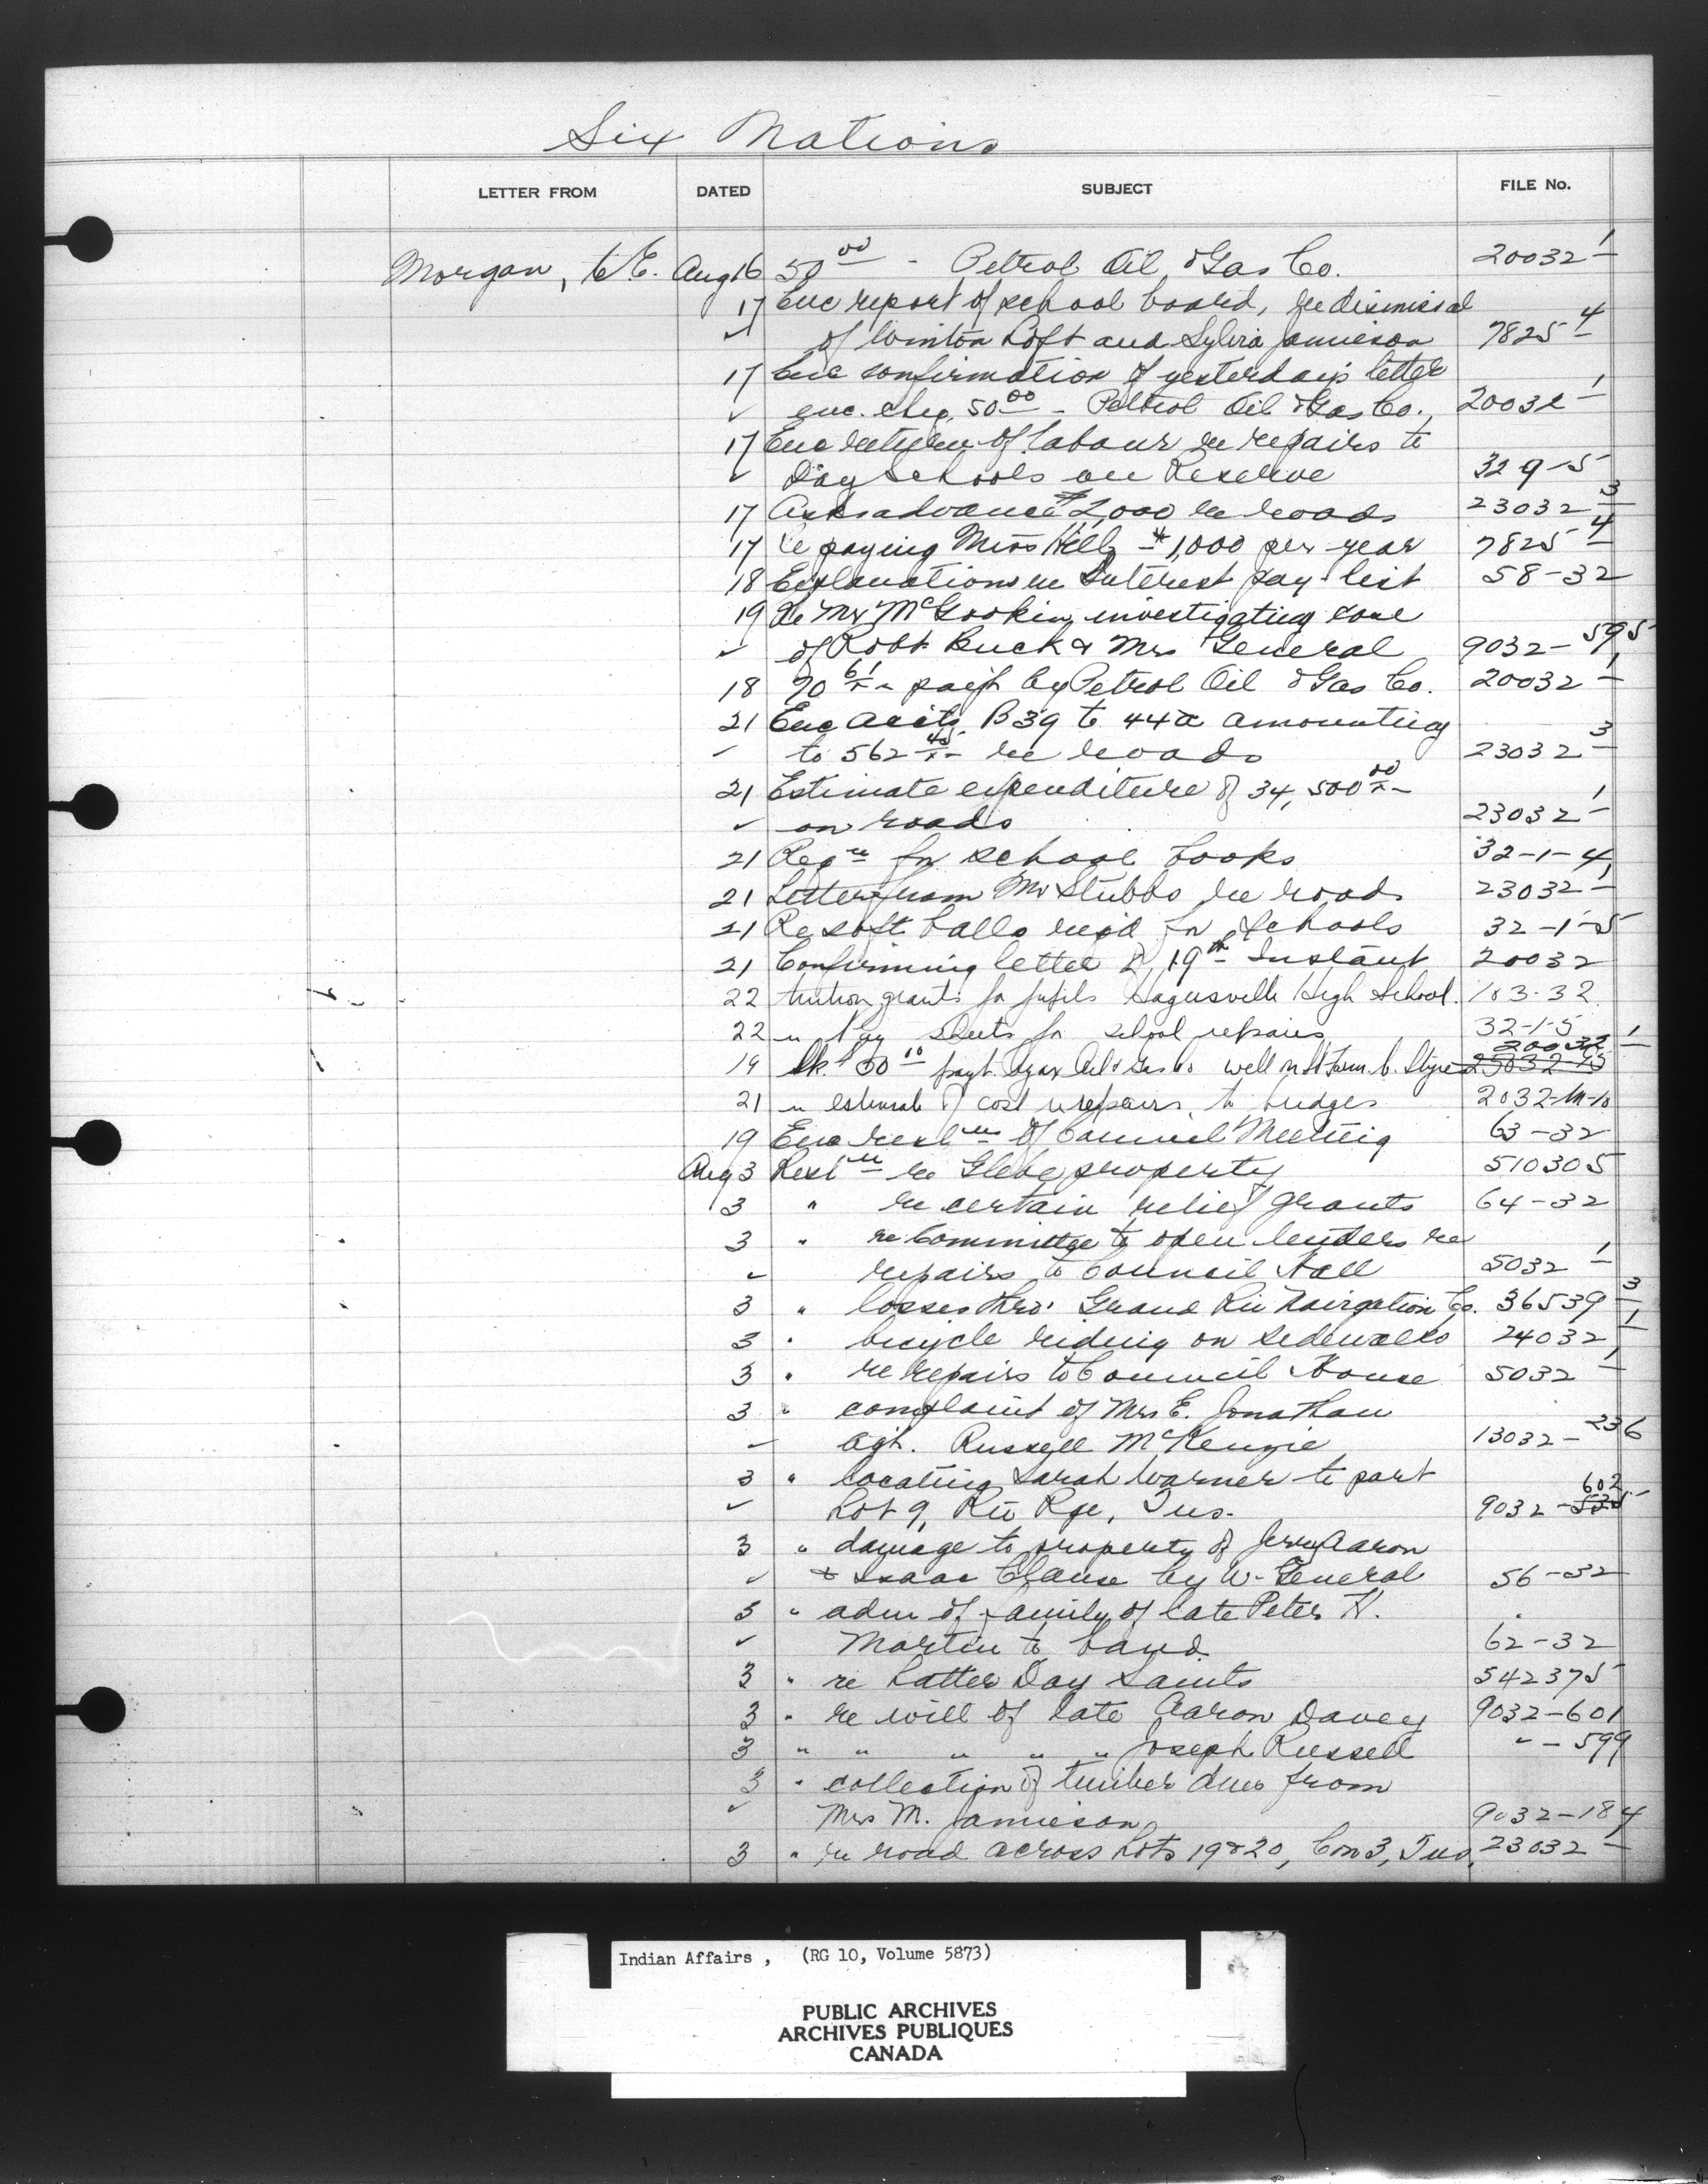 Six Nations
LETTER FROM DATED SUBJECT FILE No.
Morgan, C.E. Aug 16 50 00 - Petrol Oil & Gas Co. 20032 1
17 Enc report of school board, re dismissal
" of Winton Loft and Sylvia Jamieson 7825 4
17 Enc confirmation of yesterday's letter
" enc. chq. 50 00 - Petrol Oil & Gas Co., 20032 1
17 Enc return of labour re repairs to
" Day Schools on Reserve 32 9-5
17 Asks advance $2,000 re roads 23032 3
17 re paying Miss Hill $1,000 per year 7825 4
18 Explanations re Interest pay-list 58-32
19 Re Mr McGookin investigating case
" of Robt Buck & Mrs General 9032-595
18 70 61 - paid by Petrol Oil & Gas Co. 20032 1
21 Enc accts. B39 to 44a amounting
" to 562 45 re roads 23032 3
21 Estimate expenditure of 34,500 00
" on roads 23032 1
21 Reqn for school books 32-1-4
21 Letter from Mr Stubbs re roads 23032 1
21 Re soft balls req'd for Schools 32-1-5
21 Confirming letter of 19th Instant 20032
22 tuition grants for pupils Hagersville High School. 103-32
22 " Pay sheets for school repairs 32-1-5
19 Ck. 50 00 payt. Oil & Gas Co well on Farm C. Styres 20032 1
21 " estimate of cost repairs to bridges 2032-M-10
19 Enc resln of Council Meeting 63-32
Aug 3 Resln re Glebe property 510305
3 " re certain relief grants 64-32
3 " re Committee to open tenders re
" repairs to Council Hall 5032 1
3 " losses thro' Grand Riv Navigation Co. 36539 3
3 " bicycle riding on sidewalks 24032 1
3 " re repairs to Council House 5032 1
3 " complaint of Mrs E. Jonathan
" agt. Russell McKenzie 13032-236
3 " locating Sarah Warner to part
" Lot 9, Riv Rge, Tus. 9032-602
3 " damage to property of Jerry Aaron
" & Isaac Clause by W. General 56-32
3 " adm of family of late Peter H.
" Martin to band 62-32
3 " re Latter Day Saints 542375
3 " re will of late Aaron Davey 9032-601
3 " " " " " Joseph Russell " - 599
3 " collection of timber dues from
" Mrs M. Jamieson 9032-184
3 " re road across Lots 19 & 20, Con 3, Tus. 23032 1
Indian Affairs, (RG 10, Volume 5873)
PUBLIC ARCHIVES
ARCHIVES PUBLIQUES
CANADA